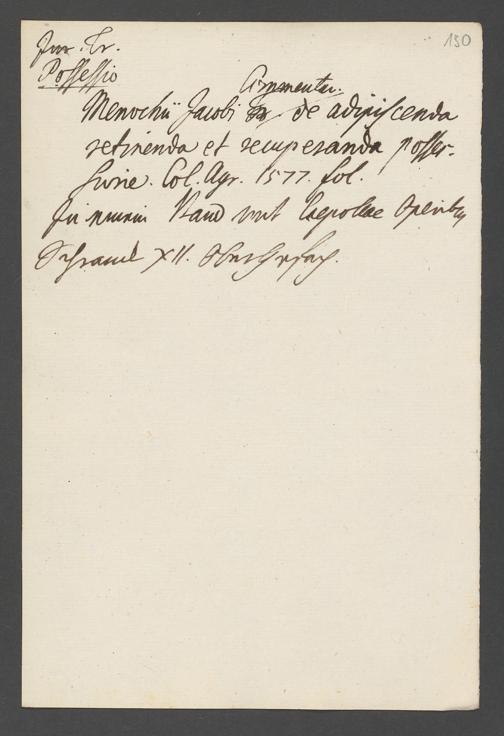 150
Jur. Tr.
Possessio
Commentar.
Menochii Jacobi de adipiscenda
retinenda et recuperanda posses-
sione. Col. Agr. 1577. fol.
In einem Band mit Caepollae Operibus
XII.